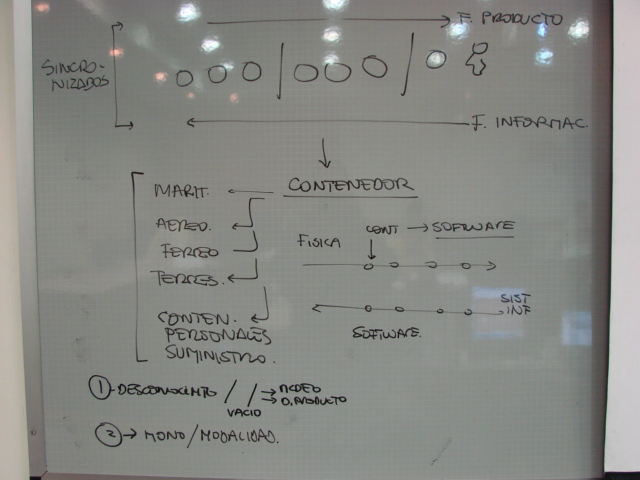 F. PRODUCTO
SINCRO-
NIZADOS
F. INFORMAC.
CONTENEDOR
MARIT.
AEREO.
FERREO
TERRES.
CONTEN.
PERSONALES
SUMINISTRO.
FISICA
CONT → SOFTWARE
SIST
INF
SOFTWARE.
1 - DESCONOCIMTO / / →
VACIO
→ D. PRODUCTO
2 → MONO / MODALIDAD.